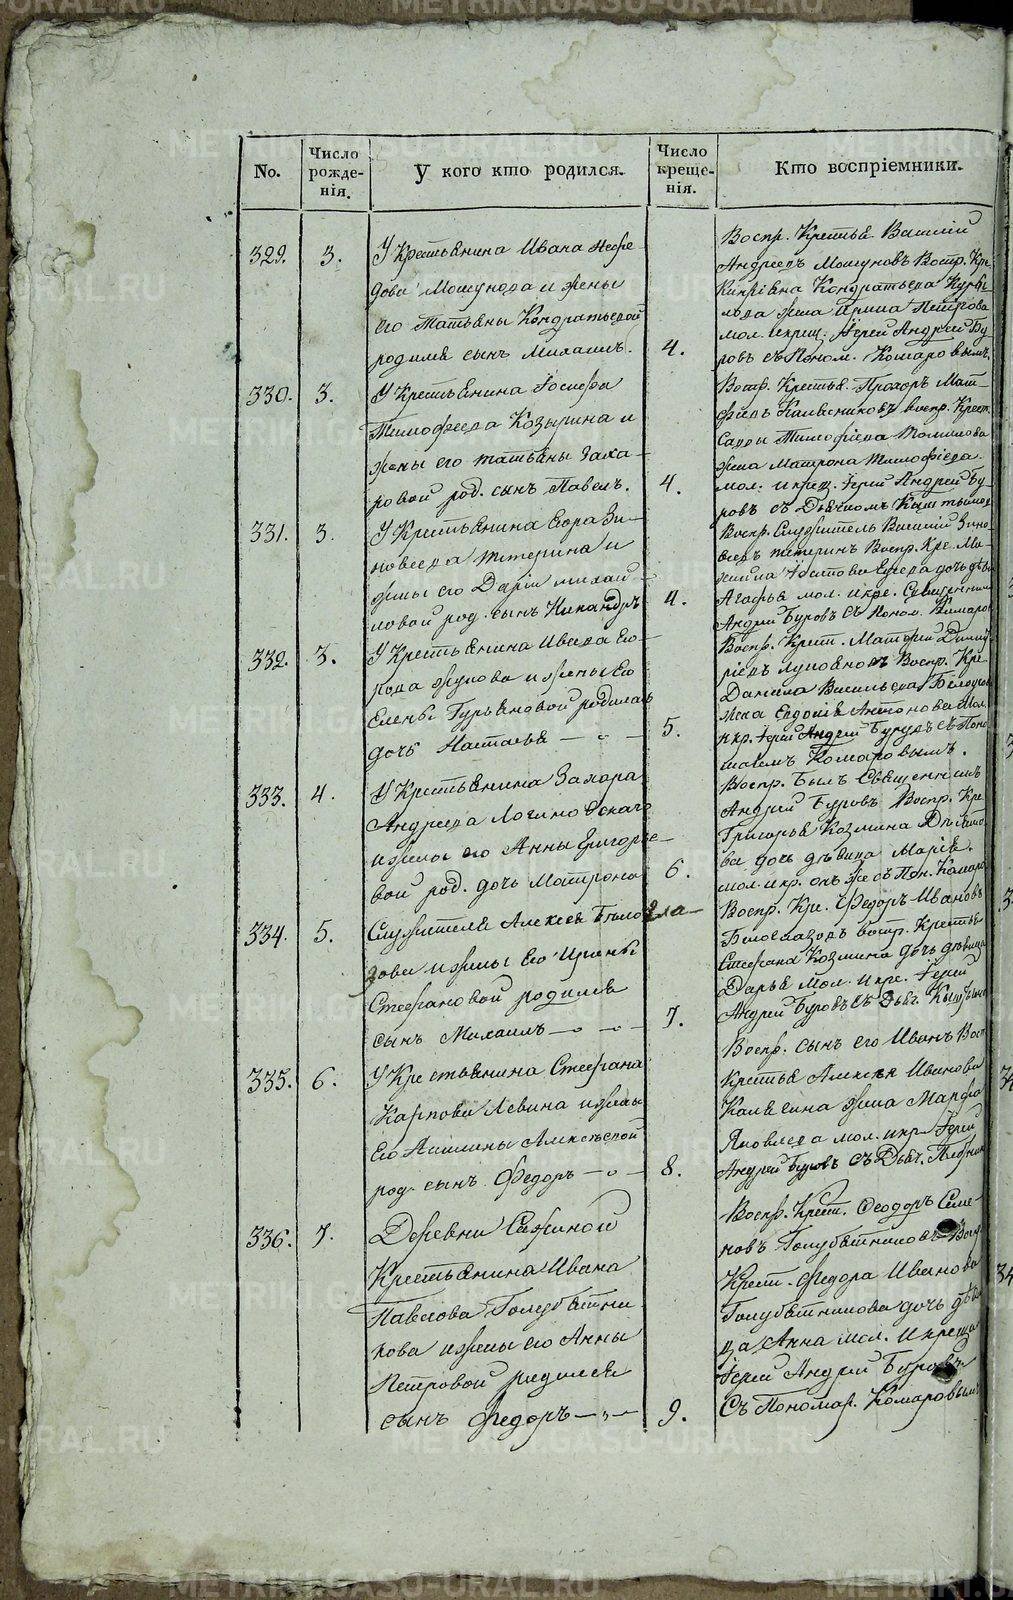 No.
Число рожде-нія.
У кого кто родился.
Число креще-нія.
Кто воспріемники.
329. 3.
У Крестьянина Ивана Нефе
дова Мошунова и жены
его Татьяны Кондратьевой
родился сынъ Михаилъ.
4.
Воспр. Крестья. Василій
Андреевъ Мошуновъ Воспр. Кре.
Кондратьева
жена Ирина Петрова
мол. и крещ. Іерей Андрей Бу
ровъ съ Поном. Комаровымъ.
330. 3.
У Крестьянина Іосифа
Тимофеева Козырина и
жены его Татьяны Заха
ровой род. сынъ Павелъ.
4.
Воспр. Крестья. Прохоръ Мат
феевъ воспр. Крест.
Саввы Тимофіева
жена Матрона Тимофіева.
мол. и крещ. Іерей Андрей Бу
ровъ съ Дьячкомъ
331. 3.
У Крестьянина Егора Зи
новьева Тетерина и
жены его Даріи Михай
ловой род. сынъ Никандръ
4.
Воспр. Служитель Василій Зино
веевъ Тетеринъ Воспр. Кре. Ма
дочь девица
Агафья мол. и кре. Священникъ
Андрей Буровъ съ Поном. Комаров
332. 3.
У Крестьянина Ивана Его
рова Жукова и жены Его
Елены Гурьяновой родилась
дочь Настасья
5.
Воспр. Крест. Матфей Дмит
ріевъ Воспр. Кре
Данила Васильева
жена Евдокія Антонова Мол.
и кр. Іерей Андрей Буровъ съ Поно
маремъ Комаровымъ.
333. 4.
У Крестьянина Захара
Андреева Логиновскаго
и жены его Анны Григорье
вой род. дочь Матрона
6.
Воспр. Былъ Священникъ
Андрей Буровъ Воспр. Кре
Григорья Козмина
ва дочь девица Марія.
мол. и кр. онъ же съ Пон. Комаро
334. 5.
Служителя Алексея Бело гла
зова и жены Его Ирины
Стефановой родился
сынъ Михаилъ
7.
Воспр. Кре. Федоръ Ивановъ
Белоглазовъ воспр. Крестья
Стефана Козмина дочь девица
Дарья мол. и кре. Іерей
Андрей Буровъ съ Дьяч.
335. 6.
У Крестьянина Стефана
Карпова Левина и жены
Его Алексеевой
род. сынъ Федоръ
8.
Воспр. сынъ его Иванъ Восп
Крестья Алексея Иванова
жена Марфа
Яковлева мол. и кр. Іерей
Андрей Буровъ съ Дьяч.
336. 7.
Деревни Сажиной
Крестьянина Ивана
Павлова Голубятни
кова и жены его Анны
Петровой родился
сынъ Федоръ
9.
Воспр. Крест. Феодоръ Семе
новъ Голубятниковъ Восп
Крест. Федора Иванова
Голубятникова дочь деви
ца Анна мол. и креща
Іерей Андрей Буровъ
съ Пономар. Комаровымъ
METRIKI.GASO-URAL.RU